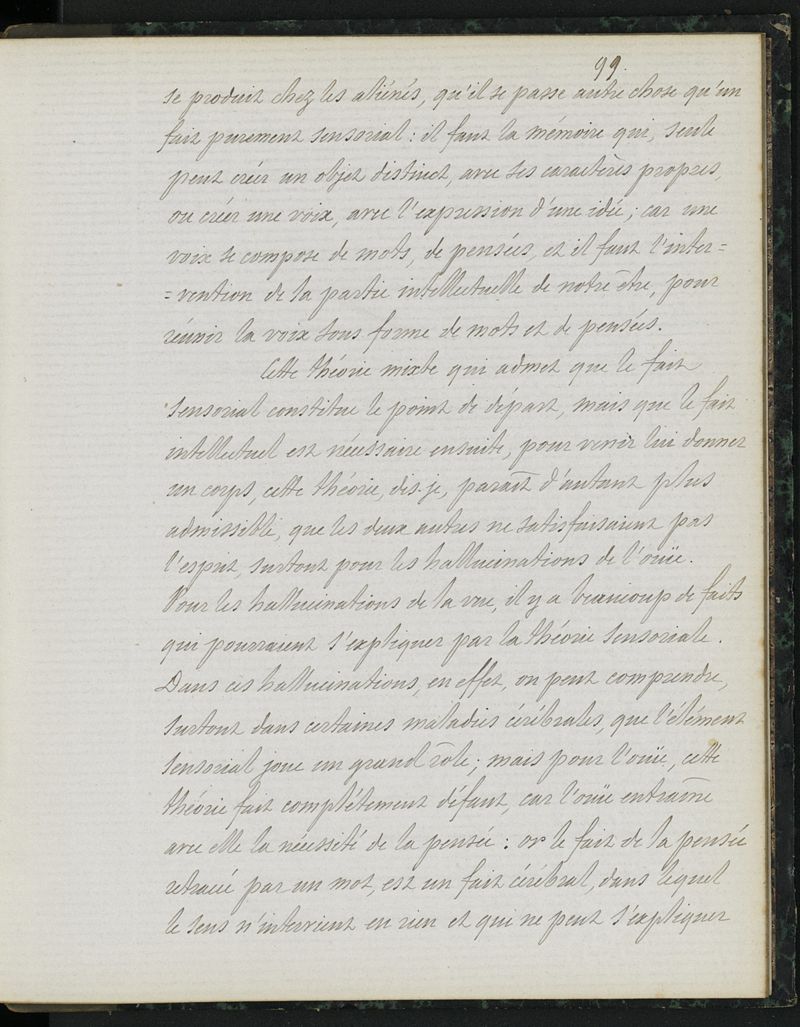 99.
se produit chez les aliénés, qu'il se passe autre chose qu'un
fait purement sensorial : il faut la mémoire qui, seule
peut créer un objet distinct, avec ses caractères propres,
ou créer une voix, avec l'expression d'une idée ; car une
voix se compose de mots, de pensées, et il faut l'inter=
=vention de la partie intellectuelle de notre être, pour
réunir la voix sous forme de mots et de pensées.
Cette théorie mixte qui admet que le fait
sensorial constitue le point de départ, mais que le fait
intellectuel est nécessaire ensuite, pour venir lui donner
un corps, cette théorie, dis-je, paraît d'autant plus
admissible, que les deux autres ne satisfaisaient pas
l'esprit, surtout pour les hallucinations de l'ouïe.
Pour les hallucinations de la vue, il y a beaucoup de faits
qui pourraient s'expliquer par la théorie sensoriale.
Dans ces hallucinations, en effet, on peut comprendre,
surtout dans certaines maladies cérébrales, que l'élément
sensorial joue un grand rôle ; mais pour l'ouïe, cette
théorie fait complètement défaut, car l'ouïe entraîne
avec elle la nécessité de la pensée : or le fait de la pensée
retracé par un mot, est un fait cérébral, dans lequel
le sens n'intervient en rien et qui ne peut s'expliquer